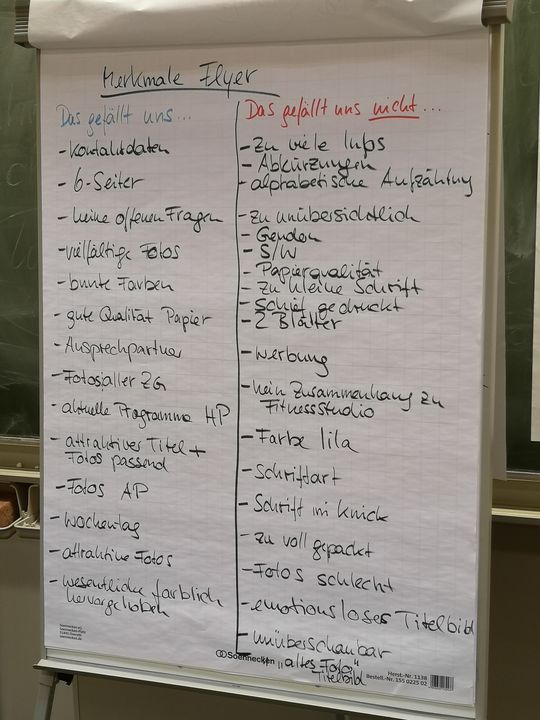 Merkmale Flyer
Das gefällt uns...
- Kontaktdaten
- 6-Seiter
- keine offenen Fragen
- vielfältige Fotos
- bunte Farben
- gute Qualität Papier
- Ansprechpartner
- Fotos aller ZG
- aktuelle Programme HP
- attraktiver Titel +
Fotos passend
- Fotos AP
- Wochentag
- attraktive Fotos
- wesentliche farblich
hervorgehoben
Das gefällt uns nicht...
- zu viele Infos
- Abkürzungen
- alphabetische Aufzählung
- zu unübersichtlich
- Gendern
- S/W
- Papierqualität
- zu kleine Schrift
- schief gedruckt
- 2 Blätter
- Werbung
- kein Zusammenhang zu
Fitnessstudio
- Farbe lila
- Schriftart
- Schrift im Knick
- zu voll gepackt
- Fotos schlecht
- emotionsloses Titelbild
- unüberschaubar
- "altes Foto"
Titelbild
Soennecken
Herst.-Nr. 1138
Bestell.-Nr. 155 0225 02